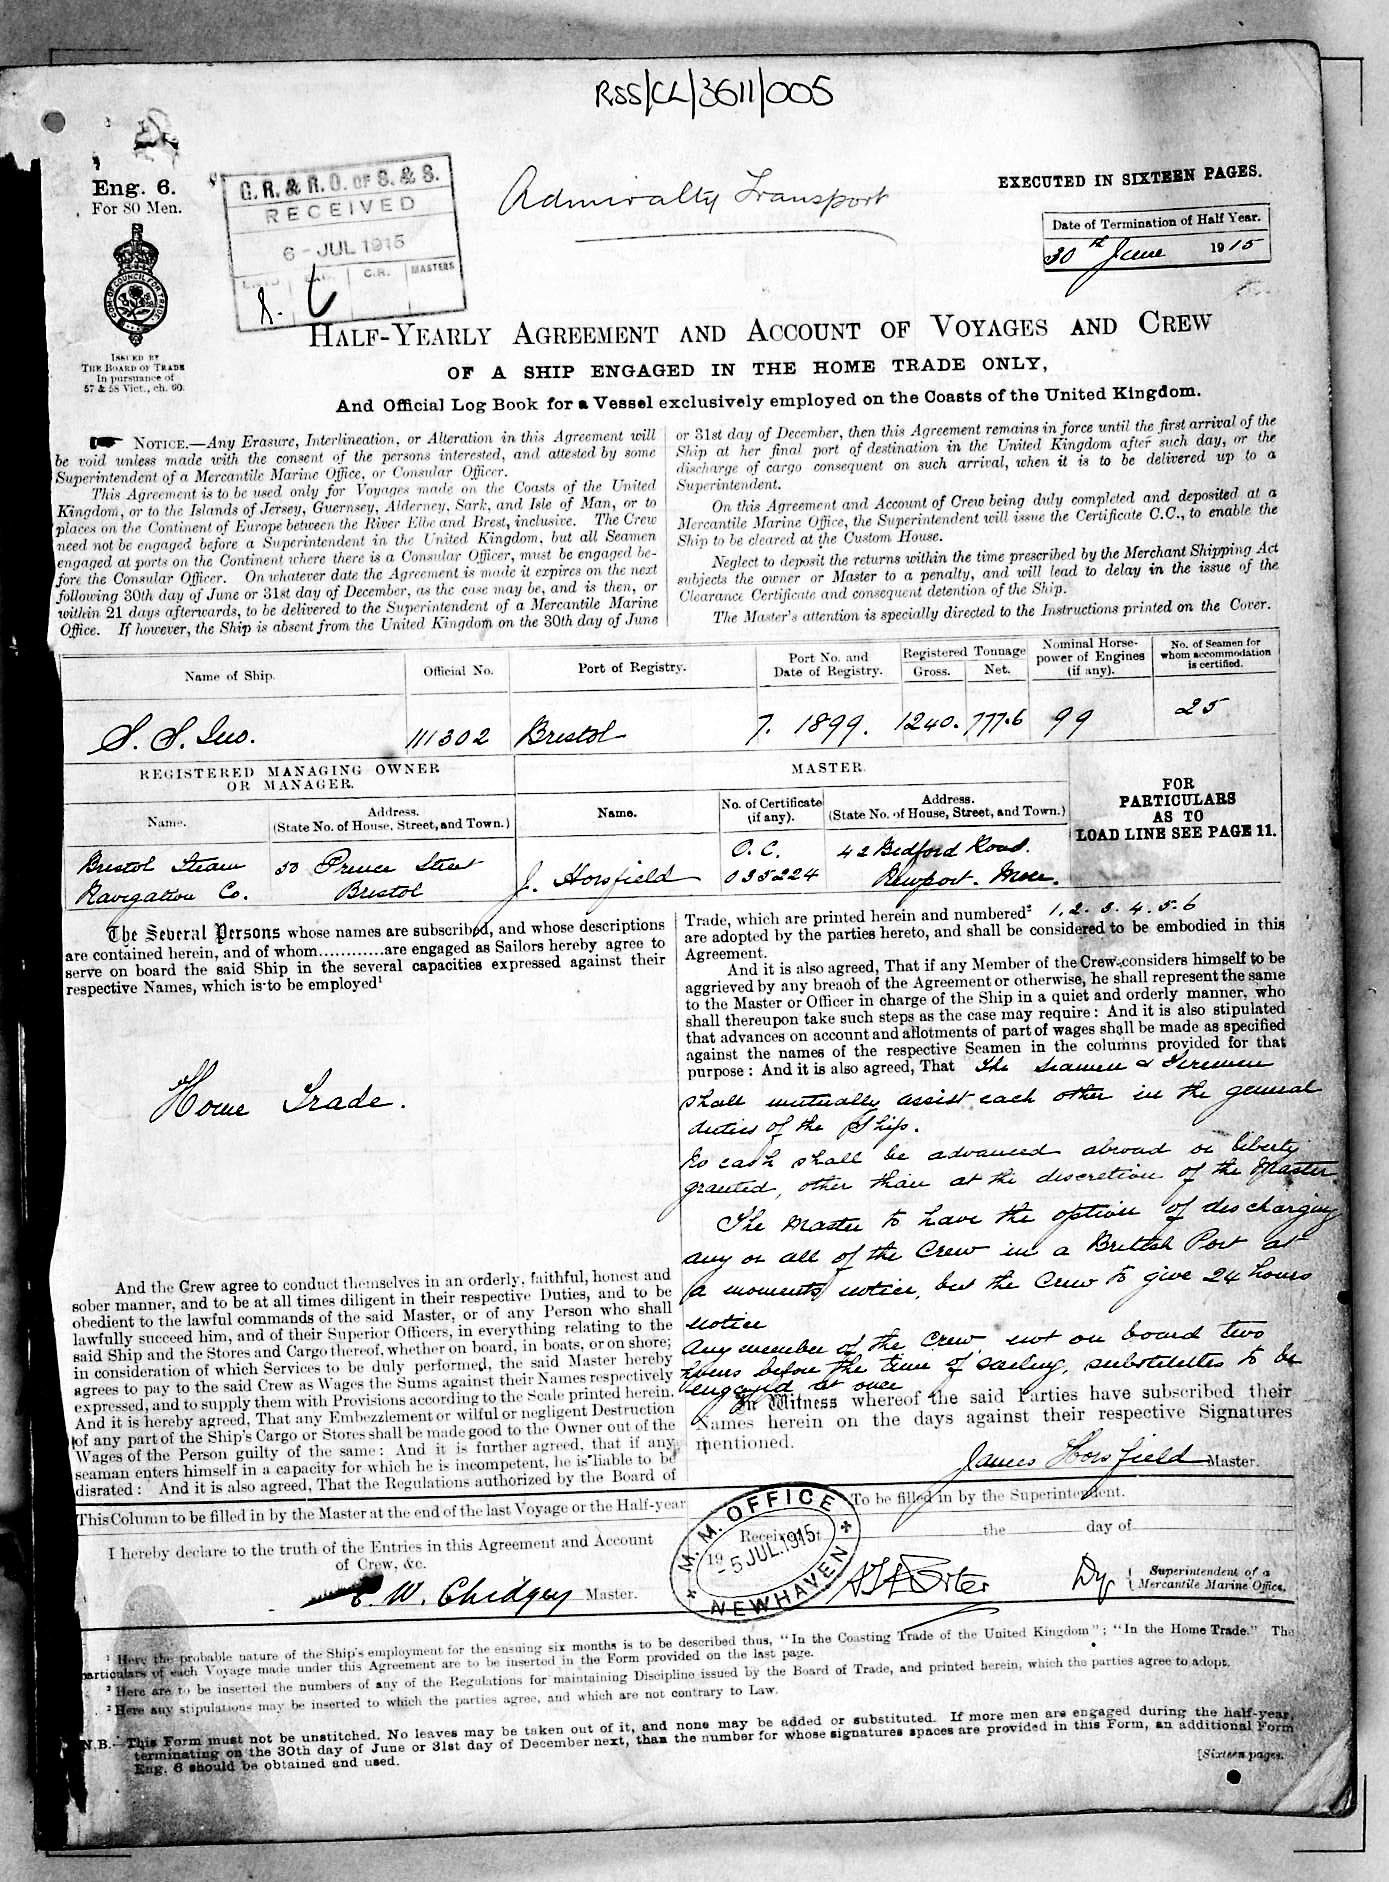 RSS/CL/3611/005
Eng. 6.
For 80 Men.
ISSUED BY
THE BOARD OF TRADE
In pursuance of
57 & 58 Vict., ch. 60.
C. R. & R. O. OF S. & S.
RECEIVED
6 - JUL 1915
C.R.
MASTERS
Admiralty Transport
EXECUTED IN SIXTEEN PAGES.
Date of Termination of Half Year.
30th June 1915
HALF-YEARLY AGREEMENT AND ACCOUNT OF VOYAGES AND CREW
OF A SHIP ENGAGED IN THE HOME TRADE ONLY,
And Official Log Book for a Vessel exclusively employed on the Coasts of the United Kingdom.
NOTICE.—Any Erasure, Interlineation, or Alteration in this Agreement will
be void unless made with the consent of the persons interested, and attested by some
Superintendent of a Mercantile Marine Office, or Consular Officer.
This Agreement is to be used only for Voyages made on the Coasts of the United
Kingdom, or to the Islands of Jersey, Guernsey, Alderney, Sark, and Isle of Man, or to
places on the Continent of Europe between the River Elbe and Brest, inclusive. The Crew
need not be engaged before a Superintendent in the United Kingdom, but all Seamen
engaged at ports on the Continent where there is a Consular Officer, must be engaged be-
fore the Consular Officer. On whatever date the Agreement is made it expires on the next
following 30th day of June or 31st day of December, as the case may be, and is then, or
within 21 days afterwards, to be delivered to the Superintendent of a Mercantile Marine
Office. If however, the Ship is absent from the United Kingdom on the 30th day of June
or 31st day of December, then this Agreement remains in force until the first arrival of the
Ship at her final port of destination in the United Kingdom after such day, or the
discharge of cargo consequent on such arrival, when it is to be delivered up to a
Superintendent.
On this Agreement and Account of Crew being duly completed and deposited at a
Mercantile Marine Office, the Superintendent will issue the Certificate C.C., to enable the
Ship to be cleared at the Custom House.
Neglect to deposit the returns within the time prescribed by the Merchant Shipping Act
subjects the owner or Master to a penalty, and will lead to delay in the issue of the
Clearance Certificate and consequent detention of the Ship.
The Master's attention is specially directed to the Instructions printed on the Cover.
Name of Ship. Official No. Port of Registry. Port No. and Date of Registry. Registered Tonnage Gross. Net. Nominal Horse-power of Engines (if any). No. of Seamen for whom accommodation is certified.
S. S. Juno. 111302 Bristol 7. 1899. 1240. 777.6 99 25
REGISTERED MANAGING OWNER
OR MANAGER.
MASTER.
Name. Address. (State No. of House, Street, and Town.) Name. No. of Certificate (if any). Address. (State No. of House, Street, and Town.)
FOR
PARTICULARS
AS TO
LOAD LINE SEE PAGE 11.
Bristol Steam 50 Prince Street O.C. 42 Bedford Road.
Navigation Co. Bristol J. Horsfield 035224 Newport. Mon.
The Several Persons whose names are subscribed, and whose descriptions
are contained herein, and of whom............are engaged as Sailors hereby agree to
serve on board the said Ship in the several capacities expressed against their
respective Names, which is to be employed¹
Home Trade.
And the Crew agree to conduct themselves in an orderly, faithful, honest and
sober manner, and to be at all times diligent in their respective Duties, and to be
obedient to the lawful commands of the said Master, or of any Person who shall
lawfully succeed him, and of their Superior Officers, in everything relating to the
said Ship and the Stores and Cargo thereof, whether on board, in boats, or on shore;
in consideration of which Services to be duly performed, the said Master hereby
agrees to pay to the said Crew as Wages the Sums against their Names respectively
expressed, and to supply them with Provisions according to the Scale printed herein.
And it is hereby agreed, That any Embezzlement or wilful or negligent Destruction
of any part of the Ship's Cargo or Stores shall be made good to the Owner out of the
Wages of the Person guilty of the same: And it is further agreed, that if any
seaman enters himself in a capacity for which he is incompetent, he is liable to be
disrated: And it is also agreed, That the Regulations authorized by the Board of
Trade, which are printed herein and numbered² 1. 2. 3. 4. 5. 6
are adopted by the parties hereto, and shall be considered to be embodied in this
Agreement.
And it is also agreed, That if any Member of the Crew considers himself to be
aggrieved by any breach of the Agreement or otherwise, he shall represent the same
to the Master or Officer in charge of the Ship in a quiet and orderly manner, who
shall thereupon take such steps as the case may require: And it is also stipulated
that advances on account and allotments of part of wages shall be made as specified
against the names of the respective Seamen in the columns provided for that
purpose: And it is also agreed, That The Seamen & Firemen
shall mutually assist each other in the general
duties of the Ship.
No cash shall be advanced abroad or liberty
granted, other than at the discretion of the Master.
The Master to have the option of discharging
any or all of the Crew in a British Port at
a moments notice, but the Crew to give 24 hours
notice
Any member of the Crew not on board two
hours before the time of sailing, substitutes to be
engaged at once
In Witness whereof the said Parties have subscribed their
Names herein on the days against their respective Signatures
mentioned.
James Horsfield Master.
This Column to be filled in by the Master at the end of the last Voyage or the Half-year
I hereby declare to the truth of the Entries in this Agreement and Account
of Crew, &c.
E. W. Chidgey Master.
To be filled in by the Superintendent.
Received at the day of
19
M. M. OFFICE
- 5 JUL 1915
NEWHAVEN
Dy
Superintendent of a
Mercantile Marine Office.
¹ Here the probable nature of the Ship's employment for the ensuing six months is to be described thus, "In the Coasting Trade of the United Kingdom"; "In the Home Trade." The
particulars of each Voyage made under this Agreement are to be inserted in the Form provided on the last page.
² Here are to be inserted the numbers of any of the Regulations for maintaining Discipline issued by the Board of Trade, and printed herein, which the parties agree to adopt.
² Here any stipulations may be inserted to which the parties agree, and which are not contrary to Law.
N.B.—This Form must not be unstitched. No leaves may be taken out of it, and none may be added or substituted. If more men are engaged during the half-year,
terminating on the 30th day of June or 31st day of December next, than the number for whose signatures spaces are provided in this Form, an additional Form
Eng. 6 should be obtained and used.
[Sixteen pages.